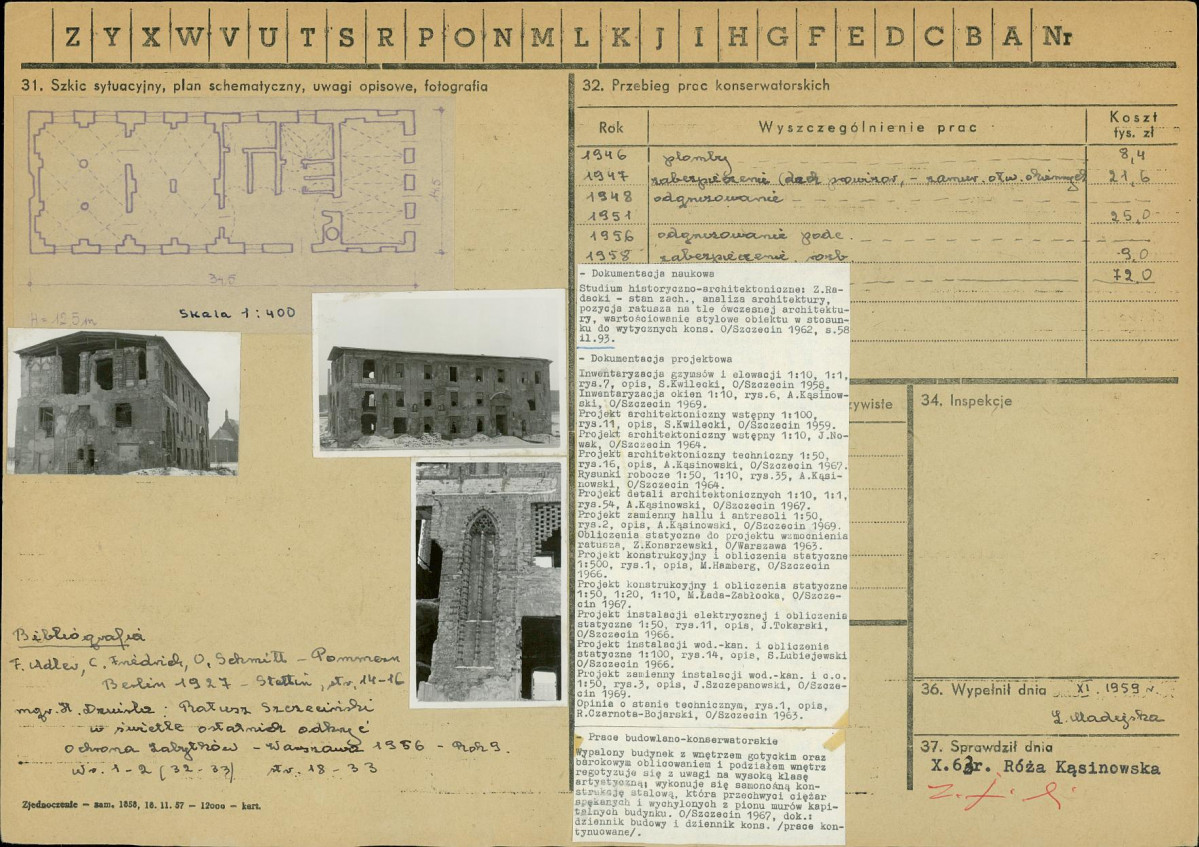 Z Y X W V U T S R P O N M L K J I H G F E D C B A Nr
31. Szkic sytuacyjny, plan schematyczny, uwagi opisowe, fotografia
34,5
H = 12.5 m
Skala 1 : 400
Bibliografia
F. Adler, C. Friedrich, O. Schmitt – Pommern
Berlin 1927 – Stettin, str. 14-16
mgr. H. Dziurla: Ratusz Szczeciński
w świetle ostatnich odkryć
Ochrona Zabytków – Warszawa 1956 – Rok 9.
Nr. 1-2 (32-33) str. 18-33
Zjednoczenie — zam. 1858, 18. 11. 57 — 12000 — kart.
32. Przebieg prac konserwatorskich
Rok Wyszczególnienie prac Koszt tys. zł
1946 plomby 8,4
1947 zabezpieczenie (dach prowizor. – zamur. otw. okiennych 21,6
1948 odgruzowanie
1951 25,0
1956 odgruzowanie podc.
1958 zabezpieczenie 9,0
72,0
- Dokumentacja naukowa
Studium historyczno-architektoniczne: Z.Ra-
dacki - stan zach., analiza architektury,
pozycja ratusza na tle ówczesnej architektu-
ry, wartościowanie stylowe obiektu w stosun-
ku do wytycznych kons. O/Szczecin 1962, s.58
il.93.
- Dokumentacja projektowa
Inwentaryzacja gzymsów i elewacji 1:10, 1:1,
rys.7, opis, S.Kwilecki, O/Szczecin 1958.
Inwentaryzacja okien 1:10, rys.6, A.Kąsinow-
ski, O/Szczecin 1969.
Projekt architektoniczny wstępny 1:100,
rys.11, opis, S.Kwilecki, O/Szczecin 1959.
Projekt architektoniczny wstępny 1:10, J.No-
wak, O/Szczecin 1964.
Projekt architektoniczny techniczny 1:50,
rys.16, opis, A.Kąsinowski, O/Szczecin 1967.
Rysunki robocze 1:50, 1:10, rys.35, A.Kąsi-
nowski, O/Szczecin 1964.
Projekt detali architektonicznych 1:10, 1:1,
rys.54, A.Kąsinowski, O/Szczecin 1967.
Projekt zamienny hallu i antresoli 1:50,
rys.2, opis, A.Kąsinowski, O/Szczecin 1969.
Obliczenia statyczne do projektu wzmocnienia
ratusza, Z.Konarzewski, O/Warszawa 1963.
Projekt konstrukcyjny i obliczenia statyczne
1:500, rys.1, opis, M.Hamberg, O/Szczecin
1966.
Projekt konstrukcyjny i obliczenia statyczne
1:50, 1:20, 1:10, M.Łada-Zabłocka, O/Szcze-
cin 1967.
Projekt instalacji elektrycznej i obliczenia
statyczne 1:50, rys.11, opis, J.Tokarski,
O/Szczecin 1966.
Projekt instalacji wod.-kan. i obliczenia
statyczne 1:100, rys.14, opis, S.Lubiejewski
O/Szczecin 1966.
Projekt zamienny instalacji wod.-kan. i c.o.
1:50, rys.3, opis, J.Szczepanowski, O/Szcze-
cin 1969.
Opinia o stanie technicznym, rys.1, opis,
R.Czarnota-Bojarski, O/Szczecin 1963.
- Prace budowlano-konserwatorskie
Wypalony budynek z wnętrzem gotyckim oraz
barokowym oblicowaniem i podziałem wnętrz
regotyzuje się z uwagi na wysoką klasę
artystyczną; wykonuje się samonośną kon-
strukcję stalową, która przechwyci ciężar
spękanych i wychylonych z pionu murów kapi-
telnych budynku. O/Szczecin 1967, dok.:
dziennik budowy i dziennik kons. /prace kon-
tynuowane/.
zywiste
34. Inspekcje
36. Wypełnił dnia XI. 1959 r.
Ł. Madejska
37. Sprawdził dnia
X.63r. Róża Kąsinowska